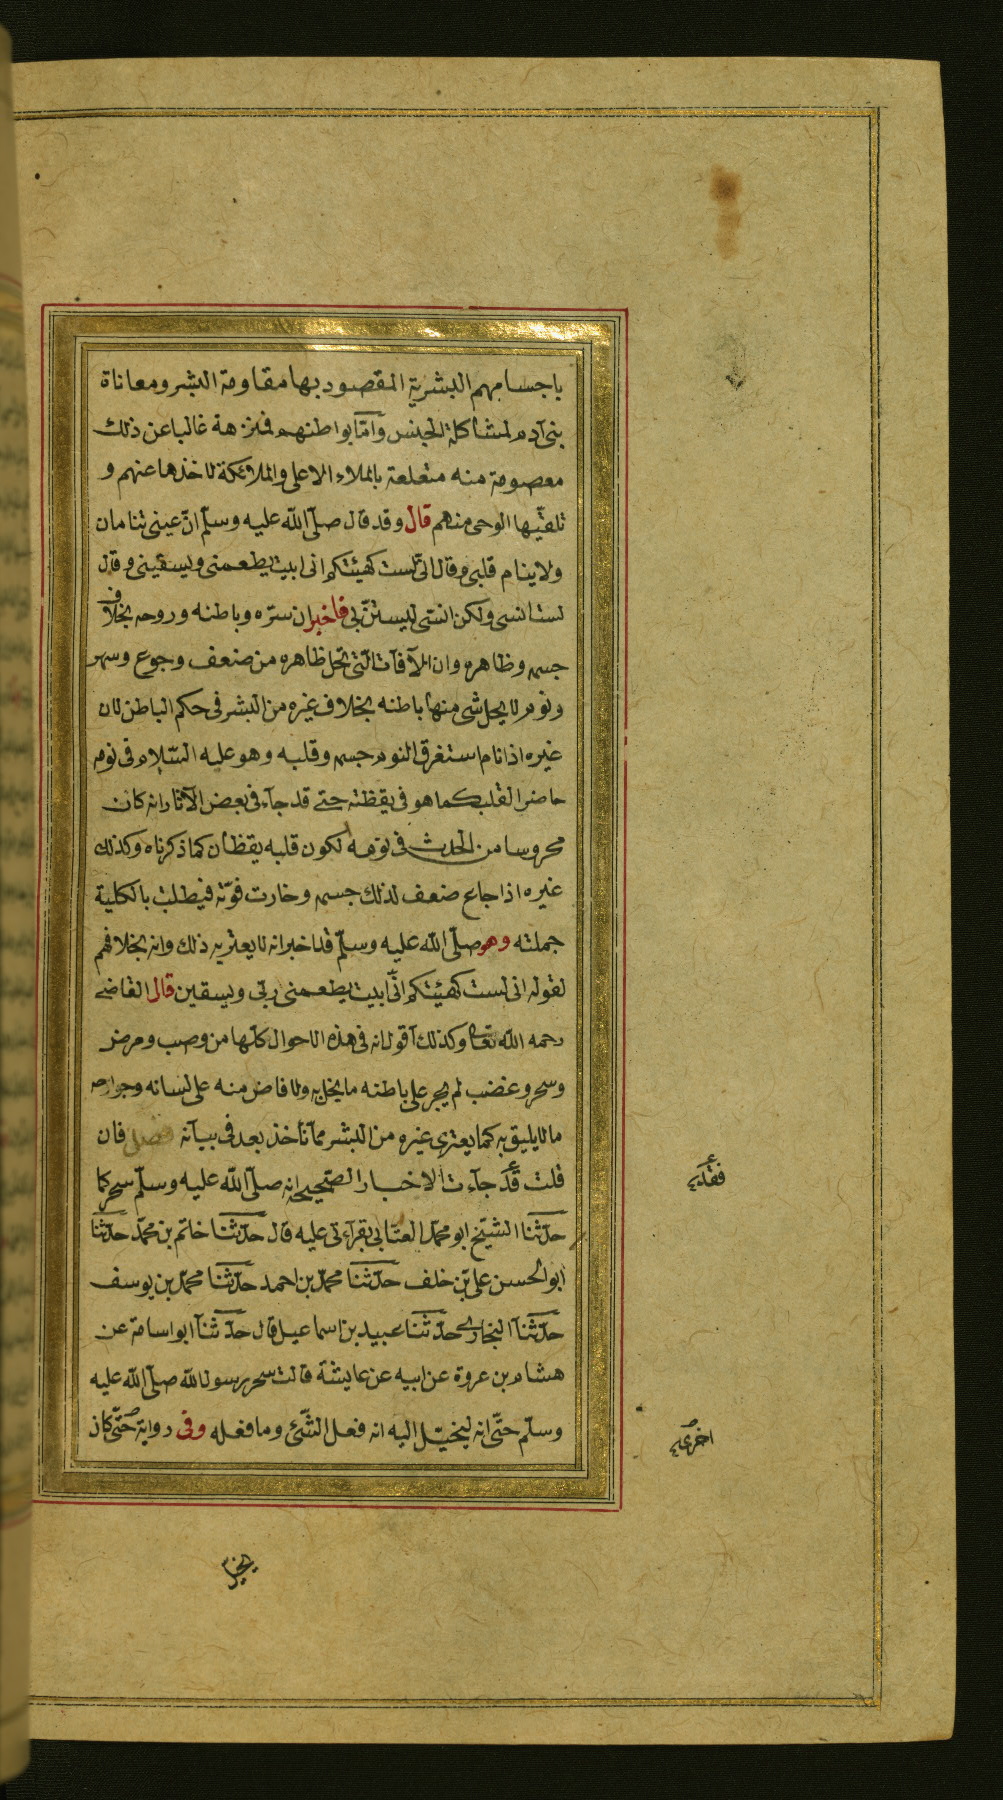 باجسامهم البشرية المقصود بها مقاومة البشر ومعاناة
بنى آدم لمشاكلة الجنس وامّا بواطنهم فمنزهة غالبا عن ذلك
معصومة منه متعلقة بالملاء الاعلى والملائكة لاخذها عنهم و
تلقيّها الوحى منهم قال وقد قال صلّى اللّه عليه وسلّم انّ عينى تنامان
ولاينام قلبى وقال انّى لست كهيئتكم انى ابيت يطعمنى ويسقينى وقال
لست انسى ولكن انسّى ليستنّ بى فاخبر ان سرّه وباطنه وروحه بخلاف
جسمه وظاهره وان الآفات الّتى تحل ظاهره من ضعف وجوع وسهر
ونوم لا يحل شى منها باطنه بخلاف غيره من البشر فى حكم الباطن لان
غيره اذا نام استغرق النوم جسمه وقلبه وهو عليه السّلام فى نومه
حاضر القلب كما هو فى يقظته حتى قد جآء فى بعض الآثار انه كان
محروسا من الحدث فى نومه لكون قلبه يقظان كما ذكرناه وكذلك
غيره اذا جاع ضعف لذلك جسمه وخارت قوّته فيطلت بالكلية
جملته وهو صلّى اللّه عليه وسلّم قد اخبر انه لا يعتريه ذلك وانه بخلافهم
لقوله انى لست كهيئتكم انّى ابيت يطعمنى ربّى ويسقين قال القاضى
رحمه اللّه تعالى وكذلك آقول انه فى هذه الاحوال كلّها من وصب ومرض
وسحر وغضب لم يجر على باطنه ما يخل به ولا فاض منه على لسانه وجوارحه
ما لا يليق به كما يعترى غيره من البشر ممّا نأخذ بعد فى بيآنه فصل فان
قلت قد جآءت الاخبار الصّحيحة انه صلّى اللّه عليه وسلّم سحر كما
حدّثنا الشيخ ابو محمّد العتابى بقرآءتى عليه قال حدّثنا خاتم بن محمّد حدّثنا
ابو الحسن على بن خلف حدّثنا محمّد بن احمد حدّثنا محمّد بن يوسف
حدّثنآ البخارى حدّثنا عبيد بن اسماعيل قال حدّثنآ ابو اسامة عن
هشام بن عروة عن ابيه عن عايشة قالت سحر رسول اللّه صلّى اللّه عليه
وسلّم حتّى انه ليخيّل اليه انه فعل الشّئ وما فعله وفى رواية حتّى كان
فقد
اخرى
يخيل